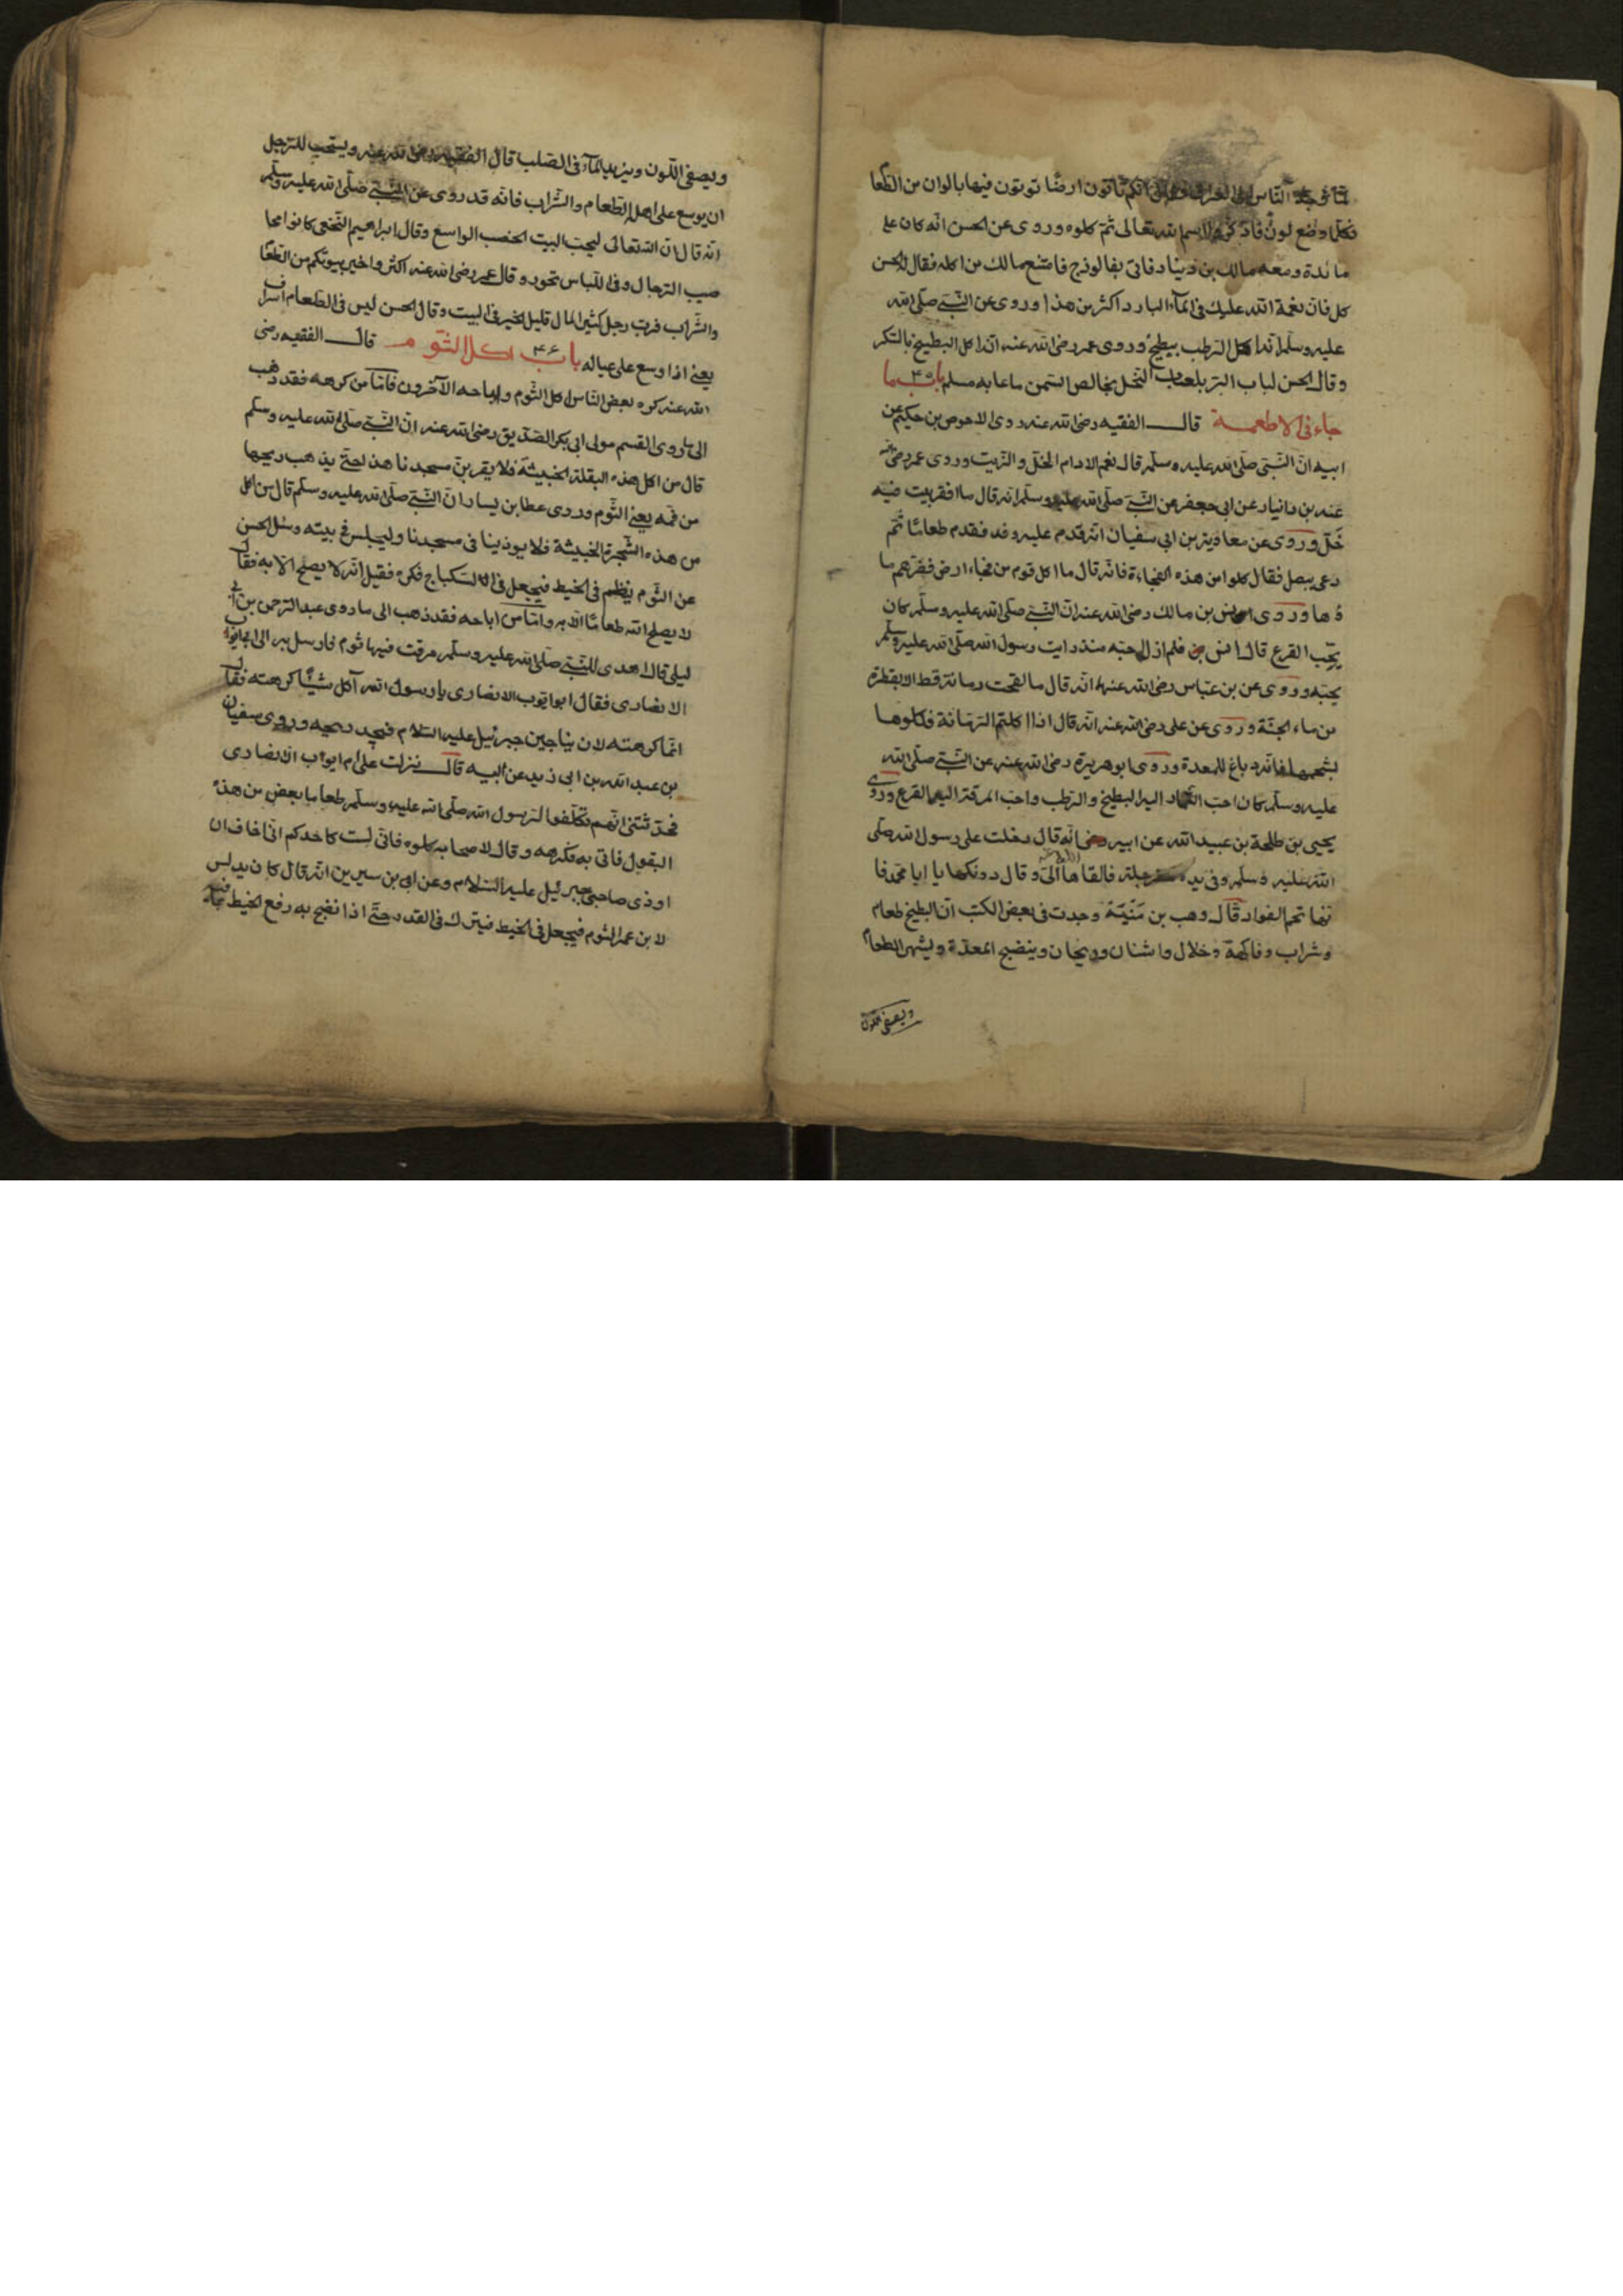 لما توجه الناس الى العراق انكم تاتون ارضًا توتون فيها بالوان من الطعام
فكلما وضع لون فاذكروا اسم الله تعالى ثم كلوه وروى عن الحسن انه كان على
مائدة ومعه مالك بن دينار فاتى بفالوذج فامتنع مالك من اكله فقال الحسن
كل فان نعمة الله عليك فى الماء البارد اكثر من هذا وروى عن النبي صلى الله
عليه وسلم انه اكل الرطب ببطيخ وروى عمر رضى الله عنه انه اكل البطيخ بالسكر
وقال الحسن لباب البر بلعاب النحل بخالص السمن ما عابه مسلم باب ۴۵ ما
جاء فى الاطعمة قال الفقيه رضى الله عنه روى الاحوص بن حكيم عن
ابيه ان النبي صلى الله عليه وسلم قال نعم الادام الخل والزيت وروى عمر رضى الله
عنه بن دانيار عن ابى جعفر عن النبي صلى الله عليه وسلم انه قال ما افقر بيت فيه
خل وروى عن معاوية بن ابى سفيان انه قدم عليه وفد فقدم طعامًا ثم
دعى ببصل فقال كلوا من هذه الفحاءة فانه قال ما اكل قوم من فحاء ارض فضرهم ما
ؤها وروى انس بن مالك رضى الله عنه ان النبي صلى الله عليه وسلم كان
يحب القرع قال انس فلم ازل احبه منذ رايت رسول الله صلى الله عليه وسلم
يحبه وروى عن بن عباس رضى الله عنهما انه قال ما لقحت رمانة قط الا بقطرة
من ماء الجنة وروى عن على رضى الله عنه انه قال اذا اكلتم الرمانة فكلوها
بشحمها فانه دباغ للمعدة وروى ابو هريرة رضى الله عنه عن النبي صلى الله
عليه وسلم كان احب اليه البطيخ والرطب واحب المرقة اليه القرع وروى
يحيى بن طلحة بن عبيد الله عن ابيه انه قال دخلت على رسول الله صلى
الله عليه وسلم وفى يده سفرجلة فالقاها الى وقال دونكها يا ابا محمد فا
نها تجم الفواد قال وهب بن منيّة وجدت فى بعض الكتب ان البطيخ طعام
وشراب وفاكهة وخلال واشنان وريحان وينضج المعدة ويشهى الطعام
ويصفى اللون
ويصفى اللون ويزيد الماء فى الصلب قال الفقيه رضى الله عنه ويستحب للرجل
ان يوسع على اهله الطعام والشراب فانه قد روى عن النبي صلى الله عليه وسلم
انه قال ان الله تعالى ليحب البيت الخصب الواسع وقال ابراهيم النخعى كانوا
الرجال وفى اللباس تجوز وقال عمر رضى الله عنه اكثروا خير بيوتكم من الطعام
والشراب فرب رجل كثير المال قليل الخير فى البيت وقال الحسن ليس فى الطعام اسراف
يعنى اذا وسع على عياله باب ۴۶ اكل الثوم قال الفقيه رضى
الله عنه كره بعض الناس اكل الثوم واباحه الآخرون فاما من كرهه فقد ذهب
الى ما روى القسم مولى ابى بكر الصديق رضى الله عنه ان النبي صلى الله عليه وسلم
قال من اكل هذه البقلة الخبيثة فلا يقربن مسجدنا هذا حتى يذهب ريحها
من فمه يعنى الثوم وروى عطا بن يسار ان النبي صلى الله عليه وسلم قال من اكل
من هذه الشجرة الخبيثة فلا يوذينا فى مسجدنا وليجلس فى بيته وسئل الحسن
عن الثوم ينظم فى الخيط فيجعل فى السكباج فكره فقيل انه لا يصلح الا به فقال
لا يصلح الله طعامًا الا به واما من اباحه فقد ذهب الى ما روى عبد الرحمن بن ابى
ليلى قال اهدى للنبي صلى الله عليه وسلم مرقت فيها ثوم فارسل به الى ابى ايوب
الانصارى فقال ابو ايوب الانصارى يا رسول الله آكل شيئًا كرهته فقال
انما كرهته لان يناجين جبرئيل عليه السلام فيجد ريحه وروى سفيان
بن عبد الله بن ابى زيد عن ابيه قال نزلت على ام ايوب الانصارى
فحدثتنى انهم تكلفوا لرسول الله صلى الله عليه وسلم طعاما بعض من هذه
البقول فاتى به فكرهه وقال لاصحابه كلوه فانى لست كاحدكم انى اخاف ان
اوذى صاحبى جبرئيل عليه السلام وعن ابى بن سيرين انه قال كان يدلس
لابن عمر الثوم فيجعل فى الخيط فيترك فى القدر حتى اذا نضج به رفع الخيط